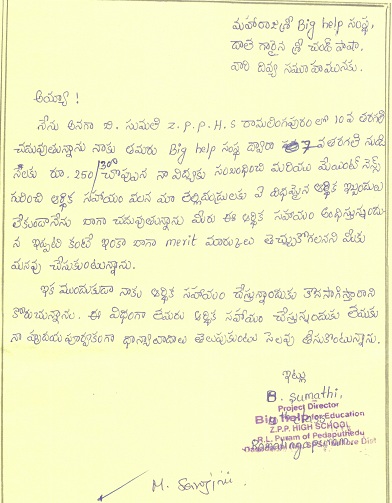 మహారాజశ్రీ Big help సంస్థ,
దాత గారైన శ్రీ చాంద్ పాషా.
వారి దివ్య సముఖమునకు.
అయ్యా !
నేను అనగా బి. సుమతి Z.P.P.H.S రామలింగపురం లో 10 వ తరగతి
చదువుతున్నాను నాకు తమరు Big help సంస్థ ద్వారా 7 వ తరగతి నుండి
నెలకు రూ. 250/1300 చొప్పున నా విద్యకు సంబంధించి మరియు మెయింటెనెన్స్
గురించి ఆర్థిక సహాయం వలన మా తల్లిదండ్రులకు ఏ విధమైన ఆర్థిక ఇబ్బందులు
లేకుండా నేను బాగా చదువుతున్నాను మీరు ఈ ఆర్థిక సహాయం అందిస్తున్నందు
న ఇప్పటి కంటే ఇంకా బాగా merit మార్కులు తెచ్చుకోగలనని మీకు
మనవు చేసుకుంటున్నాను.
ఇక ముందుకూడా నాకు ఆర్థిక సహాయం చేస్తున్నాందుకు కొనసాగిస్తారాని
కోరుచున్నాను. ఈ విధంగా తమరు ఆర్థిక సహాయం చేస్తున్నందుకు మీకు
నా హృదయపూర్వకంగా ధాన్యావాదాలు తెలుపుకుంటు సెలవు తీసుకొంటున్నాను.
ఇట్లు
B. Sumathi,
Project Director
Big Help for Education
Z.P.P. HIGH SCHOOL
R.L. Puram of Pedaputhedu
Ramalingapuram.
M. Sarojini